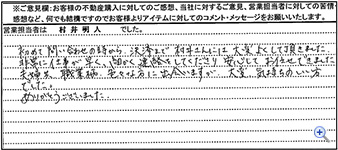 ※ご意見欄：お客様の不動産購入に対してのご感想、当社に対するご意見、営業担当者に対しての苦情・
感想など、何でも結構ですのでお客様よりアイテムに対してのコメント・メッセージをお願いいたします。
営業担当者は 村井明人 でした。
初めて問い合わせの時から、決済まで村井さんには大変よくして頂きました。
非常に仕事が早く、細かく連絡をしてくださり安心してお任せできました。
夫婦共、職業柄、色々な方に出会いますが、大変、気持ちのいい方
でした。
ありがとうございました。